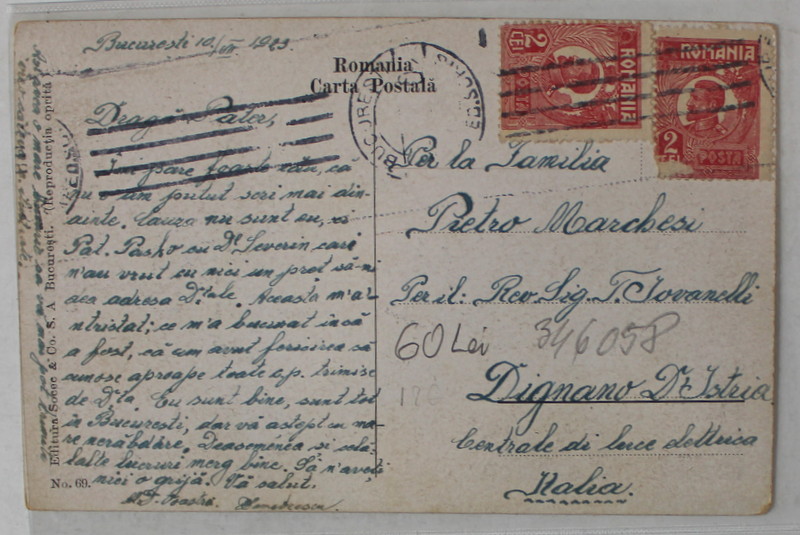 Bucuresti 10/VII 1923
Romania
Carta Postală
Dragă
Îmi pare foarte rău, că
nu v'am putut scri mai din-
ainte. Cauza nu sunt eu, ci
Pat. Pasko cu Dl. Severin cari
n'au vrut cu nici un preț să-mi
dea adresa D'tale. Aceasta m'a în-
tristat; ce m'a bucurat încă
a fost, că am avut fericirea să
cunosc aproape toate c.p. trimise
de D'ta. Eu sunt bine, sunt tot
în București, dar vă aștept cu ma-
re nerăbdare. Deasemenea și cele-
lalte lucruri merg bine. Să n'aveți
nici o grijă. Vă salut.
No. 69.
Editura Socec & Co. S. A. Bucureşti. (Reproducţia oprită
2 LEI
ROMANIA
ROMANIA
2 LEI
POSTA
BUCUREȘTI
Per la Familia
Pietro Marchesi
Per il: Rev. Sig. T. Iovanelli
60 Lei
346058
Dignano D'Istria
Centrale di luce elettrica
Italia.